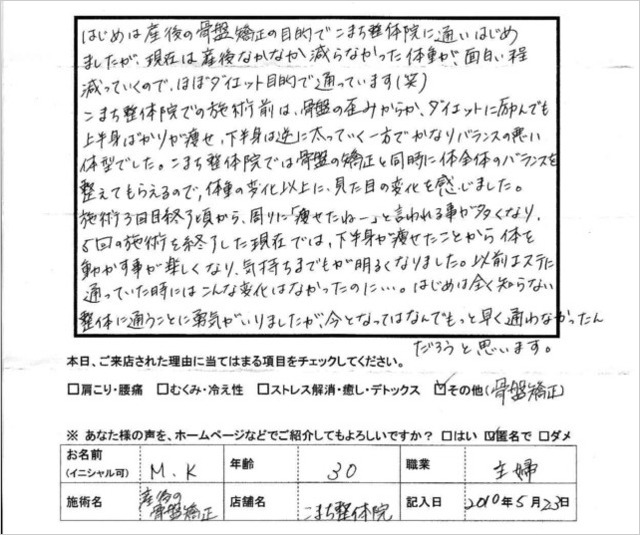 はじめは産後の骨盤矯正の目的でこまち整体院に通いはじめ
ましたが、現在は産後なかなか減らなかった体重が、面白い程
減っていくので、ほぼダイエット目的で通っています(笑)
こまち整体院での施術前は、骨盤の歪みからか、ダイエットに励んでも
上半身ばかりが痩せ、下半身は逆に太っていく一方でかなりバランスの悪い
体型でした。こまち整体院では骨盤の矯正と同時に体全体のバランスを
整えてもらえるので、体重の変化以上に、見た目の変化を感じました。
施術3回目終了頃から、周りに「痩せたねー」と言われる事が多くなり、
5回の施術を終了した現在では、下半身が痩せたことから体を
動かす事が楽しくなり、気持ちまでもが明るくなりました。以前エステに
通っていた時にはこんな変化はなかったのに…。はじめは全く知らない
整体に通うことに勇気がいりましたが、今となってはなんでもっと早く通わなかったん
だろうと思います。
本日、ご来店された理由に当てはまる項目をチェックしてください。
□肩こり・腰痛 □むくみ・冷え性 □ストレス解消・癒し・デトックス ☑その他(骨盤矯正)
※ あなた様の声を、ホームページなどでご紹介してもよろしいですか? □はい ☑匿名で □ダメ
お名前 (イニシャル可) M.K 年齢 30 職業 主婦
施術名 産後の骨盤矯正 店舗名 こまち整体院 記入日 2010年5月23日